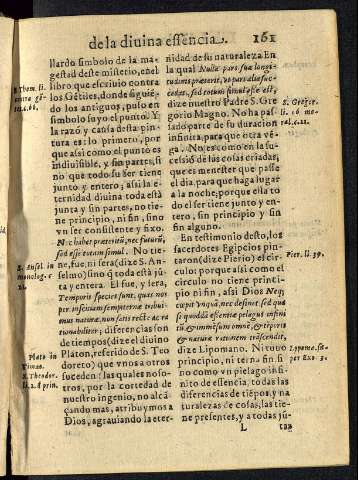 de la diuina essencia.
161
llardo simbolo de la ma-
gestad deste misterio, en el
libro que escriuio contra
los Gẽtiles, donde siguiẽ-
do los antiguos, puso en
simbolo suyo el punto. Y
la razõ y causa desta pin-
tura es: lo primero, por
que assi como el punto es
indiuisible, y sin partes, si
no que todo su ser tiene
junto y entero; assi la e-
ternidad diuina toda està
junta y sin partes, no tie-
ne principio, ni fin, sino
vn ser consistente y fixo.
Nec habet præteritũ, nec futurũ,
sed esse totum simul. No tie-
ne, fue, ni sera (dize S. An-
selmo) sino q̃ toda està jũ-
ta y entera. El fue, y sera,
Temporis species sunt, quas nos
naturabiliter; diferencias son
de tiempos (dize el diuino
Platon, referido de S. Teo
doreto) que vnos a otros
suceden: las quales noso-
tros, por la cortedad de
nuestro ingenio, no alcã-
çando mas, atribuymos a
Dios, agrauiando la eter-
S. Thom. li.
contra gẽ-
S. Ansel. in
monolog. c
Plato in
Timæo.
S. Theodor.
nidad de su naturaleza En
la qual Nulla pars suæ longi-
tudinis præterit, vt pars alia suc-
cedat, sed totum simul esse est,
dize nuestro Padre S. Gre
gorio Magno. No ha pas-
lado parte de su duracion
infinita, para que otra vẽ-
ga. No es como en la su-
cessiõ de las cosas criadas,
que es menester que passe
el dia, para que haga lugar
a la noche, porque ella to
do el ser tiene junto y en-
tero, sin principio y sin
fin alguno.
En testimonio desto, los
sacerdotes Egipcios pin-
taron (dize Pierio) el cir-
culo: porque assi como el
circulo no tiene princi-
pio ni fin, assi Dios Neq;
cœpit vnquã, nec desinet sed quæ
se quoddã essentiæ pelagus infini
tũ & immẽsum omnẽ, & tẽporis
& naturæ rationem trãscendit,
dize Lipomano. Ni tuuo
principio, ni ternà fin. si
no como vn pielago infi-
nito de essencia, todas las
diferencias de tiẽpos, y na
turalezas de cosas, las tie-
ne presentes, y a todas jũ-
S. Gregor.
li. 16. mo-
ral. c. 21.
Pier. li. 39.
Lypoma. su-
per Exo. 3.
L